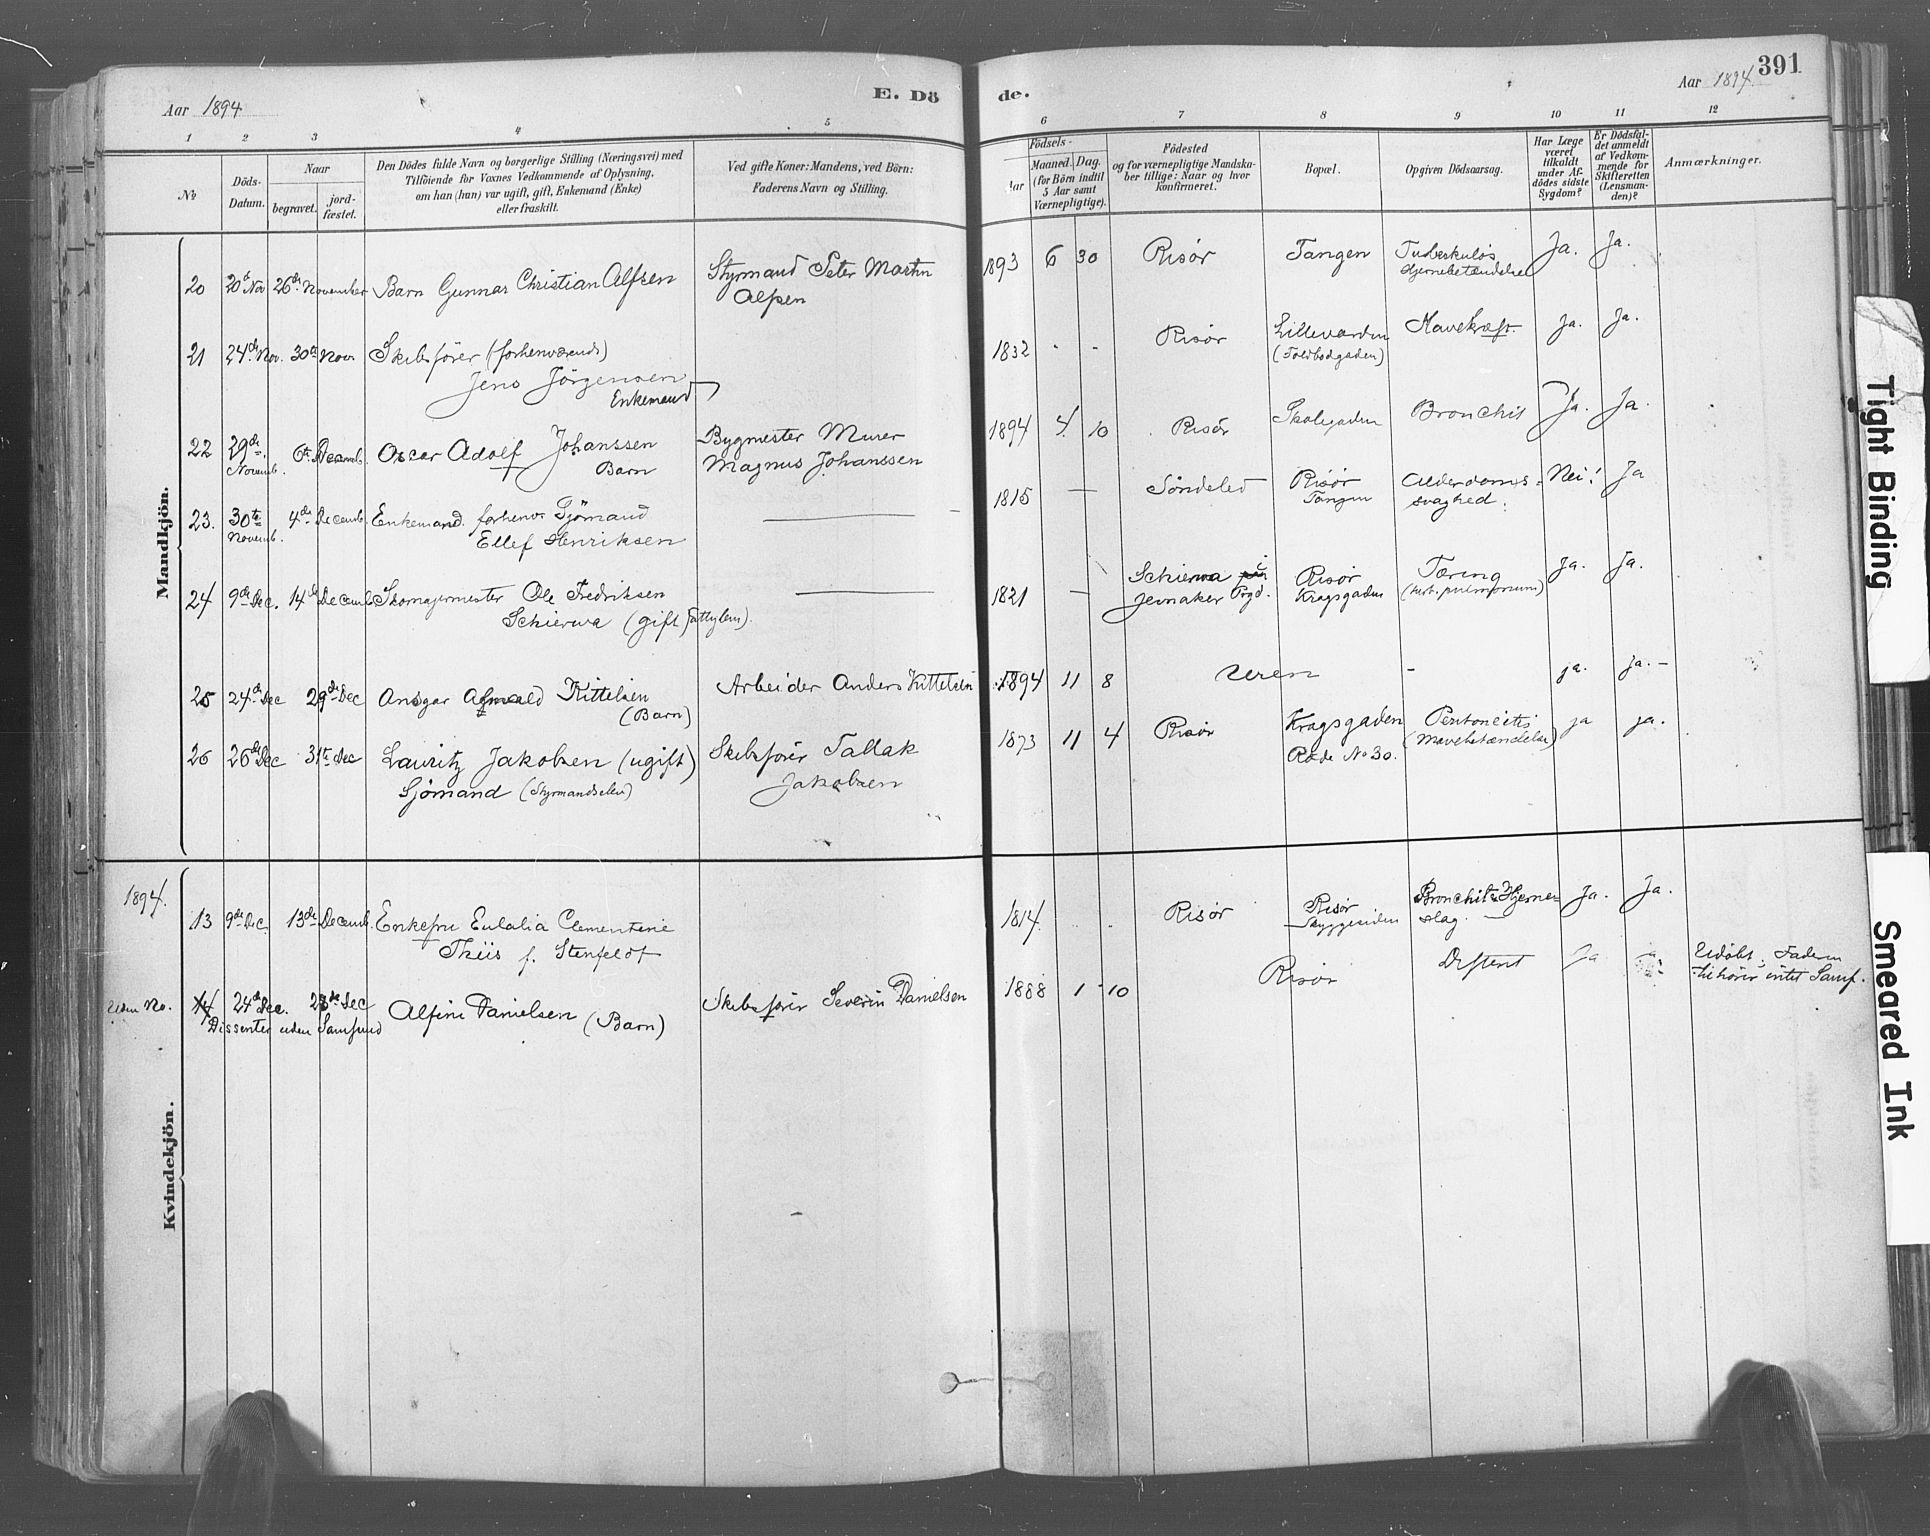 391
Aar 1894
E. Dö
de.
Aar 1894.
1 2 3 4 5 6 7 8 9 10 11 12
No
Döds-
Datum.
Naar
begravet.
jord-
fæstet.
Den Dödes fulde Navn og borgerlige Stilling (Næringsvei) med
Tilföiende for Voxnes Vedkommende af Oplysning,
om han (hun) var ugift, gift, Enkemand (Enke)
eller fraskilt.
Ved gifte Koner: Mandens, ved Börn:
Faderens Navn og Stilling.
Födsels-
Aar
Maaned. Dag.
(for Börn indtil
5 Aar samt
Værnepligtige).
Födested
og for værnepligtige Mandska-
ber tillige: Naar og hvor
konfirmeret.
Bopæl.
Opgiven Dödsaarsag.
Har Læge
været
tilkaldt
under Af-
dödes sidste
Sygdom?
Er Dödsfal-
det anmeldt
af Vedkom-
mende for
Skifteretten
(Lensman-
den)?
Anmærkninger.
Mandkjön.
20 20d Nov 26de November Barn Gunnar Christian Alfsen Styrmand Peter Martin
Alfsen
1893 6 30 Risör Tangen Tuberkuløs
Hjernebetændelse
Ja. Ja.
21 24de Nov. 30te Nov. Skibsförer (forhenværende)
Jens Jörgensen
Enkemand
1832 - - Risør Lillevarden
(Toldbodgaden)
Mavekræft. Ja. Ja.
22 29de
Novemb.
6te Decemb. Oscar Adolf Johanssen
Barn
Bygmester Murer
Magnus Johanssen
1894 4 10 Risör Skolegaden Bronchit Ja. Ja.
23. 30te
Novemb.
4de Decemb. Enkemand. forhenv. Sjömand
Ellef Henriksen
1815 — Söndeled Risör
Tangen
Alderdoms-
svaghed.
Nei! Ja
24 9de Dec. 14de Decemb. Skomagermester Ole Fredriksen
Schierwa (gift
1821 — Schierwa i
Jevnaker Prgd.
Risør
Kragsgaden
Tæring
(tub. pulmonum)
Ja. Ja.
25 24de Dec 29de Dec Ansgar Kittelsen
(Barn)
Arbeider Anders Kittelsen
1894 11 8 Uren - ja. ja. -
26 26de Dec 31te Dec Lauritz Jakobsen (ugift)
Sjömand (Styrmandselev)
Skibsförer Tallak
Jakobsen
1873 11 4 Risör Kragsgaden
Rode No 30.
Peritoneitis
(Mavebetændelse)
ja ja.
Kvindekjön.
1894.
13 9de Dec. 13de Decemb. Enkefru Eulalia Clementine
Thiis f. Stenfeldt
1814. Risør Risør
Skyggesiden
Bronchit Hjerne-
slag.
Ja. Ja.
Uden No. 14 24de Dec. 28de Dec
Dissenter uden Samfund
Alfine Danielsen (Barn)
Skibsförer Severin Danielsen
1888 1 10 Risør Difterit Ja
Udöbt. Faderen
tilhörer intet Samf.
Tight Binding
Smeared Ink